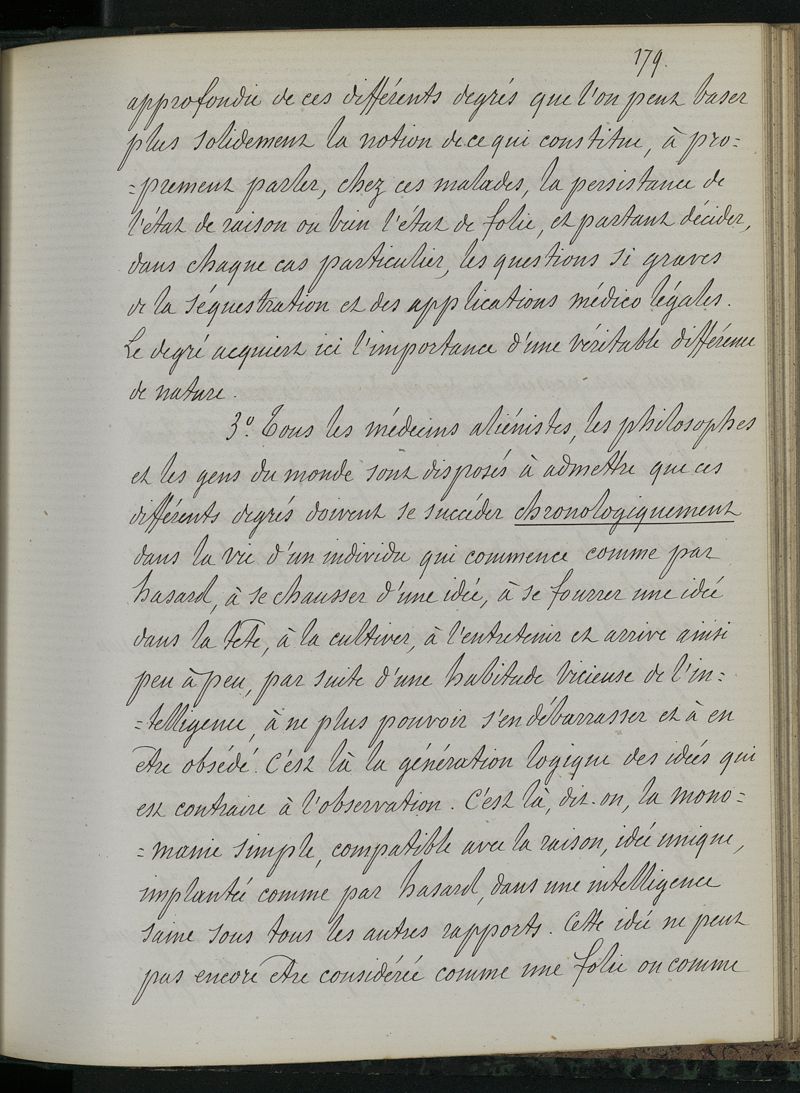 179.
approfondie de ces différents degrés que l'on peut baser
plus solidement la notion de ce qui constitue, à pro=
=prement parler, chez ces malades, la persistance de
l'état de raison ou bien l'état de folie, et partant décider,
dans chaque cas particulier, les questions si graves
de la séquestration et des applications médico légales.
Le degré acquiert ici l'importance d'une véritable différence
de nature.
3º. Tous les médecins aliénistes, les philosophes
et les gens du monde sont disposés à admettre que ces
différents degrés doivent se succéder chronologiquement
dans la vie d'un individu qui commence comme par
hasard, à se chausser d'une idée, à se fourrer une idée
dans la tête, à la cultiver, à l'entretenir et arrive ainsi
peu à peu, par suite d'une habitude vicieuse de l'in=
=telligence, à ne plus pouvoir s'en débarrasser et à en
être obsédé. C'est là la génération logique des idées qui
est contraire à l'observation. C'est là, dit-on, la mono=
=manie simple, compatible avec la raison, idée unique,
implantée comme par hasard, dans une intelligence
saine sous tous les autres rapports. Cette idée ne peut
pas encore être considérée comme une folie ou comme